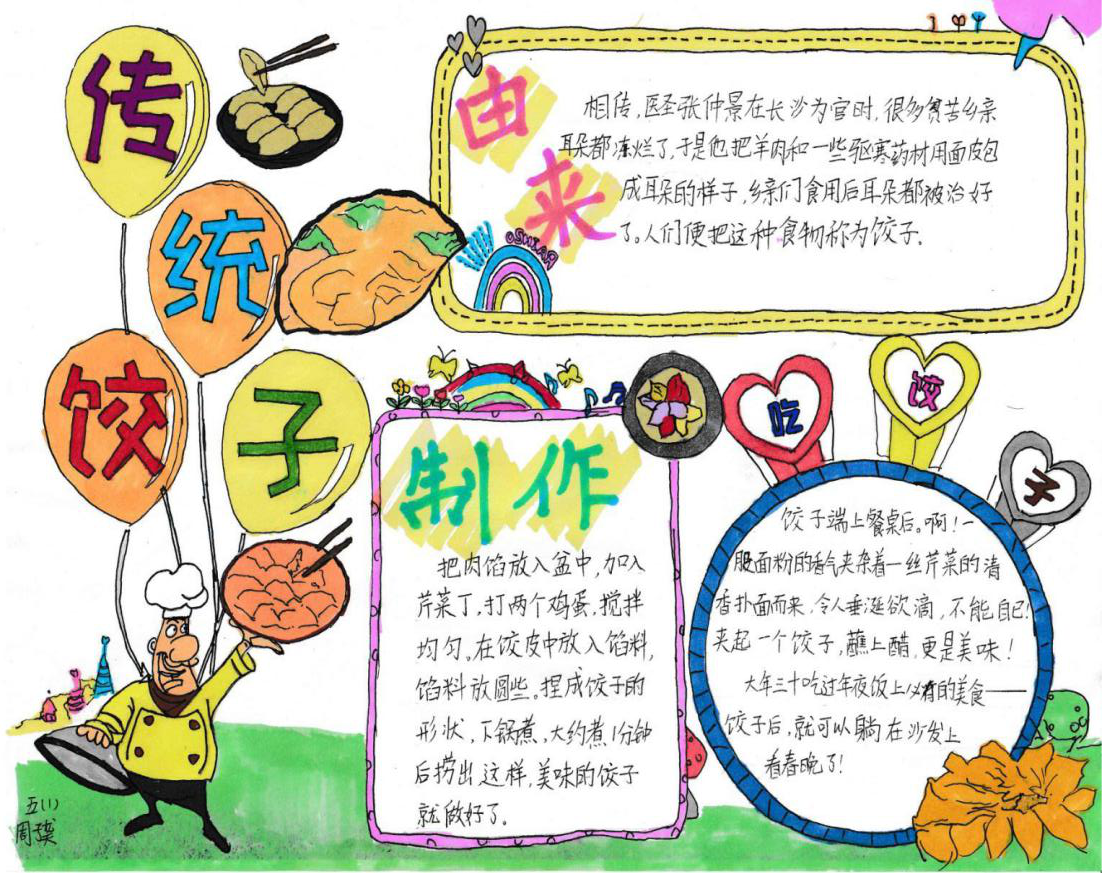 传
统
饺
子
由
来
相传,医圣张仲景在长沙为官时,很多贫苦乡亲
耳朵都冻烂了,于是他把羊肉和一些驱寒药材用面皮包
成耳朵的样子,乡亲们食用后耳朵都被治好
了。人们便把这种食物称为饺子.
制作
把肉馅放入盆中,加入
芹菜丁,打两个鸡蛋,搅拌
均匀。在饺皮中放入馅料,
馅料放圆些。捏成饺子的
形状,下锅煮,大约煮1分钟
后捞出这样,美味的饺子
就做好了。
吃
饺
子
饺子端上餐桌后。啊!一
股面粉的香气夹杂着一丝芹菜的清
香扑面而来,令人垂涎欲滴,不能自已!
夹起一个饺子,蘸上醋,更是美味!
大年三十吃过年夜饭上必有的美食——
饺子后,就可以躺在沙发上
看春晚了!
五(1)